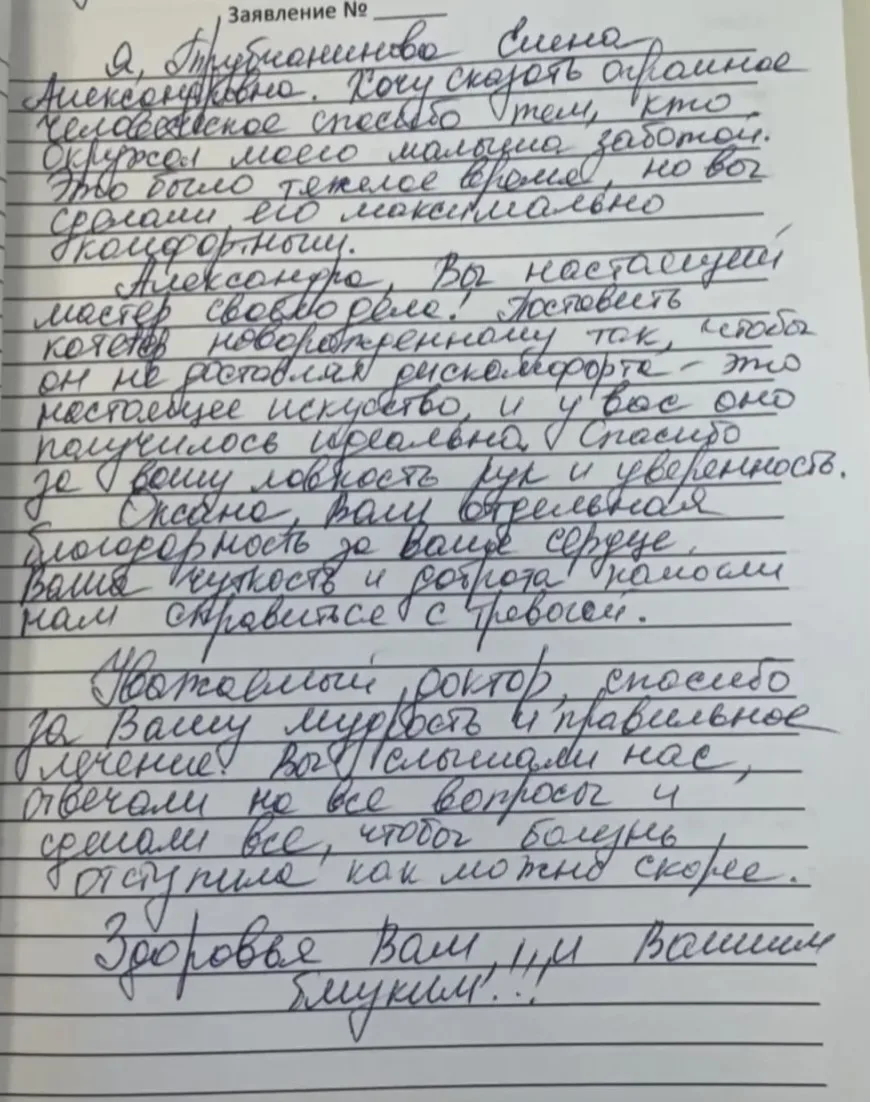 Заявление № ______
Я, Трубчанинова Елена
Александровна. Хочу сказать огромное
человеческое спасибо тем, кто
окружал моего малыша заботой.
Это было тяжелое время, но вы
сделали его максимально
комфортным.
Александра, Вы настоящий
мастер своего дела! Поставить
катетер новорожденному так, чтобы
он не доставлял дискомфорта - это
настоящее искусство, и у вас оно
получилось идеально. Спасибо
за вашу ловкость рук и уверенность.
Оксана, Вам отдельная
благодарность за ваше сердце.
Ваша чуткость и доброта помогли
нам справиться с тревогой.
Уважаемый доктор, спасибо
за Вашу мудрость и правильное
лечение. Вы слышали нас,
отвечали на все вопросы и
сделали все, чтобы болезнь
отступила как можно скорее.
Здоровья Вам, и Вашим
близким!!!